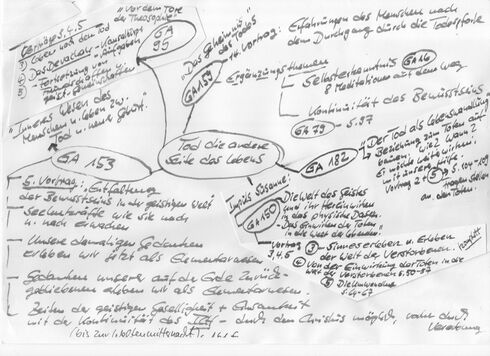 "Vor dem Tore
der Theosophie"
GA
95
Vorträge 3.4.5
① Leben nach dem Tod
② Das Devachan - Kausalleib
③ Fortsetzung von Aufgaben
"Das Geheimnis
des Todes"
GA 159
14. Vortrag:
Erfahrungen des Menschen nach
dem Durchgang durch die Todespforte
Ergänzungsthemen
Selbsterkenntnis GA 16
8 Meditationen auf dem Weg
Kontinuität des Bewusstseins
GA 79 - S. 97
"Inneres Wesen des
Menschen u. Leben zw.
Tod u. neuer Geburt."
GA 153
Tod die andere
Seite des Lebens
GA 182
"Der Tod als Lebenswandlung"
Beziehung zum Toten auf-
bauen, wie? wann?
mit unsere Hilfe.
Vortrag 2 + ③ S. 104-109
Fragen stellen
an den Toten.
5. Vortrag: Entfaltung
der Bewusstseins in der geistigen Welt
Seelenkräfte wie sie nach
u. nach erwachen
Unsere damaligen Gedanken
erleben wir jetzt als Elementarwesen
Gedanken unserer auf der Erde zurück-
gebliebenen erleben wir als Elementarwesen.
Zeiten der geistigen Geselligkeit + Einsamkeit
mit der Kontinuität des ICH - durch den Christus möglich,
(bis zur Weltenmitternacht)
GA 150
"Die Welt des Geistes
und ihr Hereinwirken
in das physische Dasein.
- Das Einwirken der Toten
in die Welt der Lebenden"
Vortrag
3, 4, 5
③ - Sinneserleben u. Erleben
der Welt der Verstorbenen.
④ Von der Einwirkung der Toten in die
Welt der Verstorbenen S. 50-57